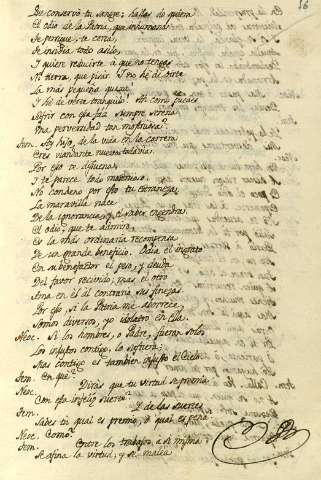 56
Que conservó tu sangre; hallas do quiera
El odio de la Patria, que inhumana
Se persigue, te corta,
de insidia todo asilo,
I quiere reducirte á que no tengas
Ni tierra, que pisar. I no hé de oirte
La más pequeña quexa?
I hé de verte tranquilo? Ah como puedes
Sufrir con esa faz siempre serena
Una perversidad tan monstruosa?
Tem. Ay hijo, de la vida en la carrera
Eres viandante nuevo todavia.
Por eso te disgustas,
I te parece todo monstruoso.
No condeno por esto tu extrañeza,
La maravilla nace
De la ignorancia, y el saber engendra.
El odio, que te admira,
Es la más ordinaria recompensa
De un grande beneficio. Odia el ingrato
En su benefactor el peso, y deuda
Del favor recivido; mas el otro
Ama en él al contrario sus finezas
Por eso, si la Patria me aborrece
Somos diversos, yo idolatro en Ella.
Neoc. Si los hombres, o Padre, fueran solos
Los injustos contigo, lo sufriera;
Mas contigo es tambien injusto el Cielo.
Tem. En qué?
Neoc. Dirás que tu virtud se premia
Con esa infeliz suerte?
Tem. I de las suertes
Sabes tú qual es premio, ó qual es pena?
Neoc. Como?
Tem. Entre los trabajos a si misma
Se afina la virtud; y se malea